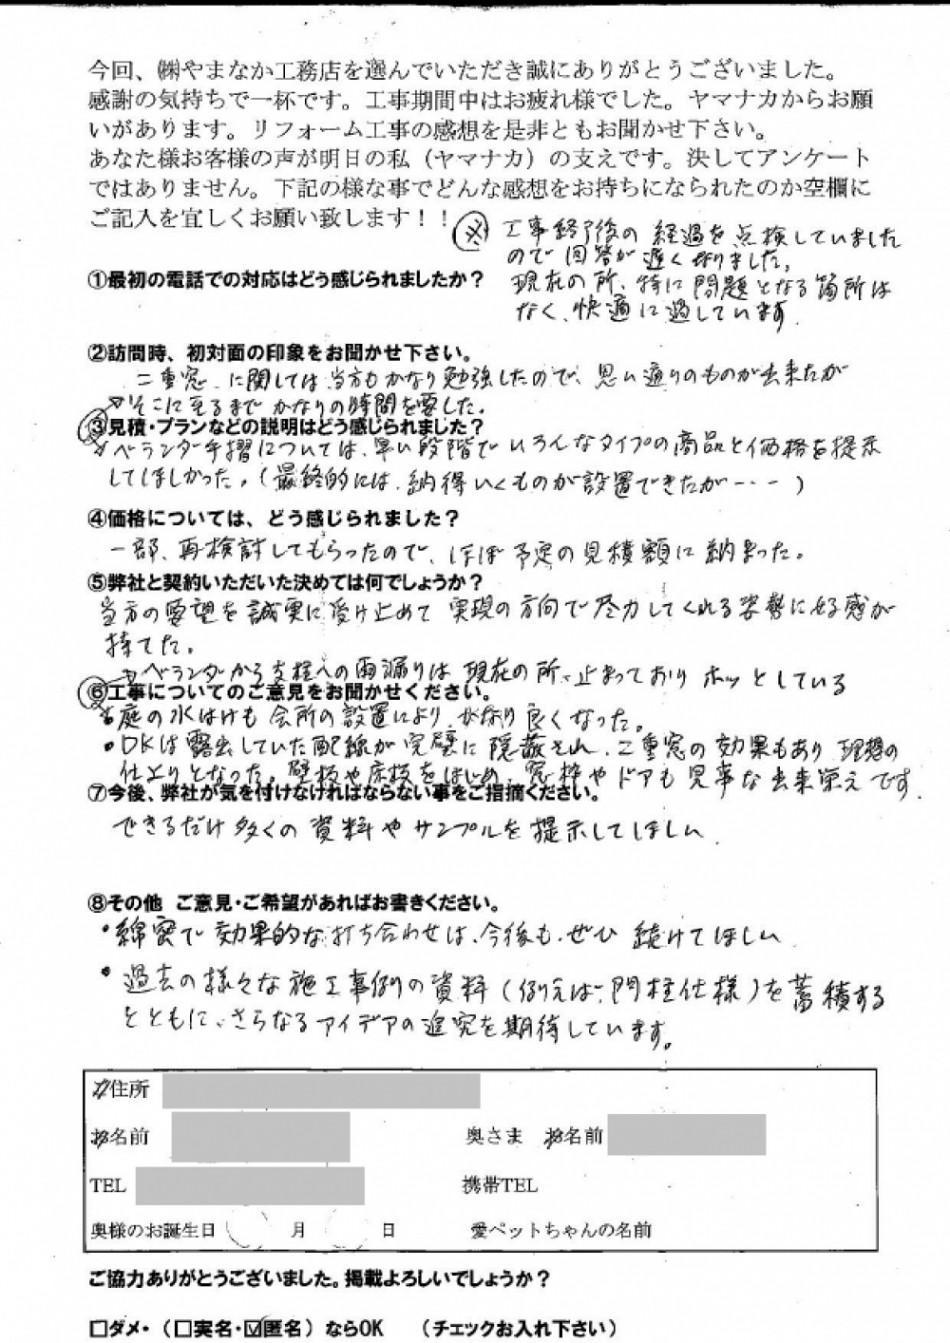 今回、㈱やまなか工務店を選んでいただき誠にありがとうございました。
感謝の気持ちで一杯です。工事期間中はお疲れ様でした。ヤマナカからお願
いがあります。リフォーム工事の感想を是非ともお聞かせ下さい。
あなた様お客様の声が明日の私（ヤマナカ）の支えです。決してアンケート
ではありません。下記の様な事でどんな感想をお持ちになられたのか空欄に
ご記入を宜しくお願い致します！！
※ 工事終了後の経過を点検していました
ので回答が遅くなりました。
現在の所、特に問題となる箇所は
なく、快適に過しています
①最初の電話での対応はどう感じられましたか？
②訪問時、初対面の印象をお聞かせ下さい。
二重窓に関しては当方もかなり勉強したので、思い通りのものが出来たが
そこに至るまでかなりの時間を要した。
③見積・プランなどの説明はどう感じられました？
ベランダ手摺については、早い段階でいろんなタイプの商品と価格を提示
してほしかった。（最終的には、納得いくものが設置できたが・・・）
④価格については、どう感じられました？
一部、再検討してもらったので、ほぼ予定の見積額に納まった。
⑤弊社と契約いただいた決めては何でしょうか？
当方の要望を誠実に受け止めて実現の方向で尽力してくれる姿勢に好感が
持てた。
ベランダから支柱への雨漏りは現在の所、止まっておりホッとしている
⑥工事についてのご意見をお聞かせください。
庭の水はけも会所の設置により、かなり良くなった。
・DKは露出していた配線が完璧に隠蔽され、二重窓の効果もあり理想の
仕上りとなった。壁板や床板をはじめ、窓枠やドアも見事な出来栄えです。
⑦今後、弊社が気を付けなければならない事をご指摘ください。
できるだけ多くの資料やサンプルを提示してほしい
⑧その他 ご意見・ご希望があればお書きください。
・綿密で効果的な打ち合わせは、今後も、ぜひ続けてほしい
・過去の様々な施工事例の資料（例えば、門柱仕様）を蓄積する
とともに、さらなるアイデアの追究を期待しています。
住所
名前 奥さま 名前
TEL 携帯TEL
奥様のお誕生日 月 日 愛ペットちゃんの名前
ご協力ありがとうございました。掲載よろしいでしょうか？
□ダメ・（□実名・☑匿名）ならOK （チェックお入れ下さい）